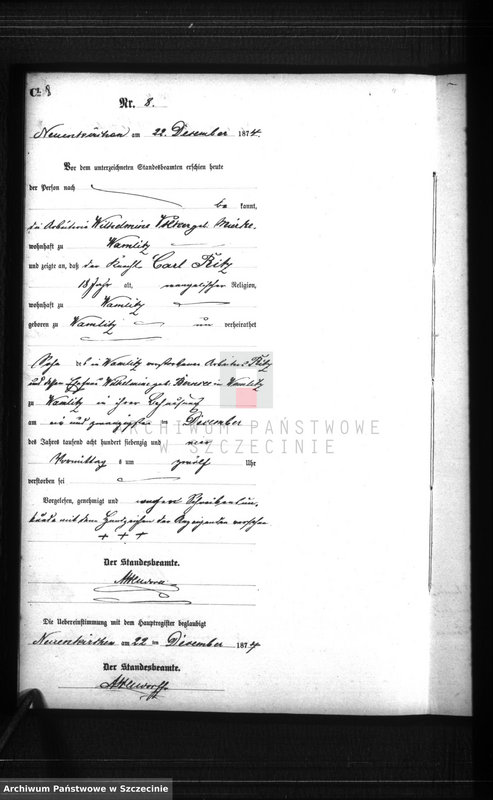 C. 8
Nr. 8.
Neuenkirchen am 22. Dezember 1874.
Vor dem unterzeichneten Standesbeamten erschien heute
der Person nach
be kannt,
die Arbeiterin Wilhelmine geb.
wohnhaft zu Wamlitz
und zeigte an, daß der Knecht Carl Fitz
18 Jahr alt, evangelischer Religion,
wohnhaft zu Wamlitz
geboren zu Wamlitz un verheirathet
Sohn des in Wamlitz verstorbenen Arbeiters Fitz
und dessen Ehefrau Wilhelmine geb. in Wamlitz
zu Wamlitz in ihrer Behausung
am ein und zwanzigsten Dezember
des Jahres tausend acht hundert siebenzig und vier
Vormittag s um zwölf Uhr
verstorben sei
Vorgelesen, genehmigt und wegen
mit dem Handzeichen der versehen
+ + +
Der Standesbeamte.
Die Uebereinstimmung mit dem Hauptregister beglaubigt
Neuenkirchen am 22 ten Dezember 1874
Der Standesbeamte.
ARCHIWUM PAŃSTWOWE
W SZCZECINIE
Archiwum Państwowe w Szczecinie